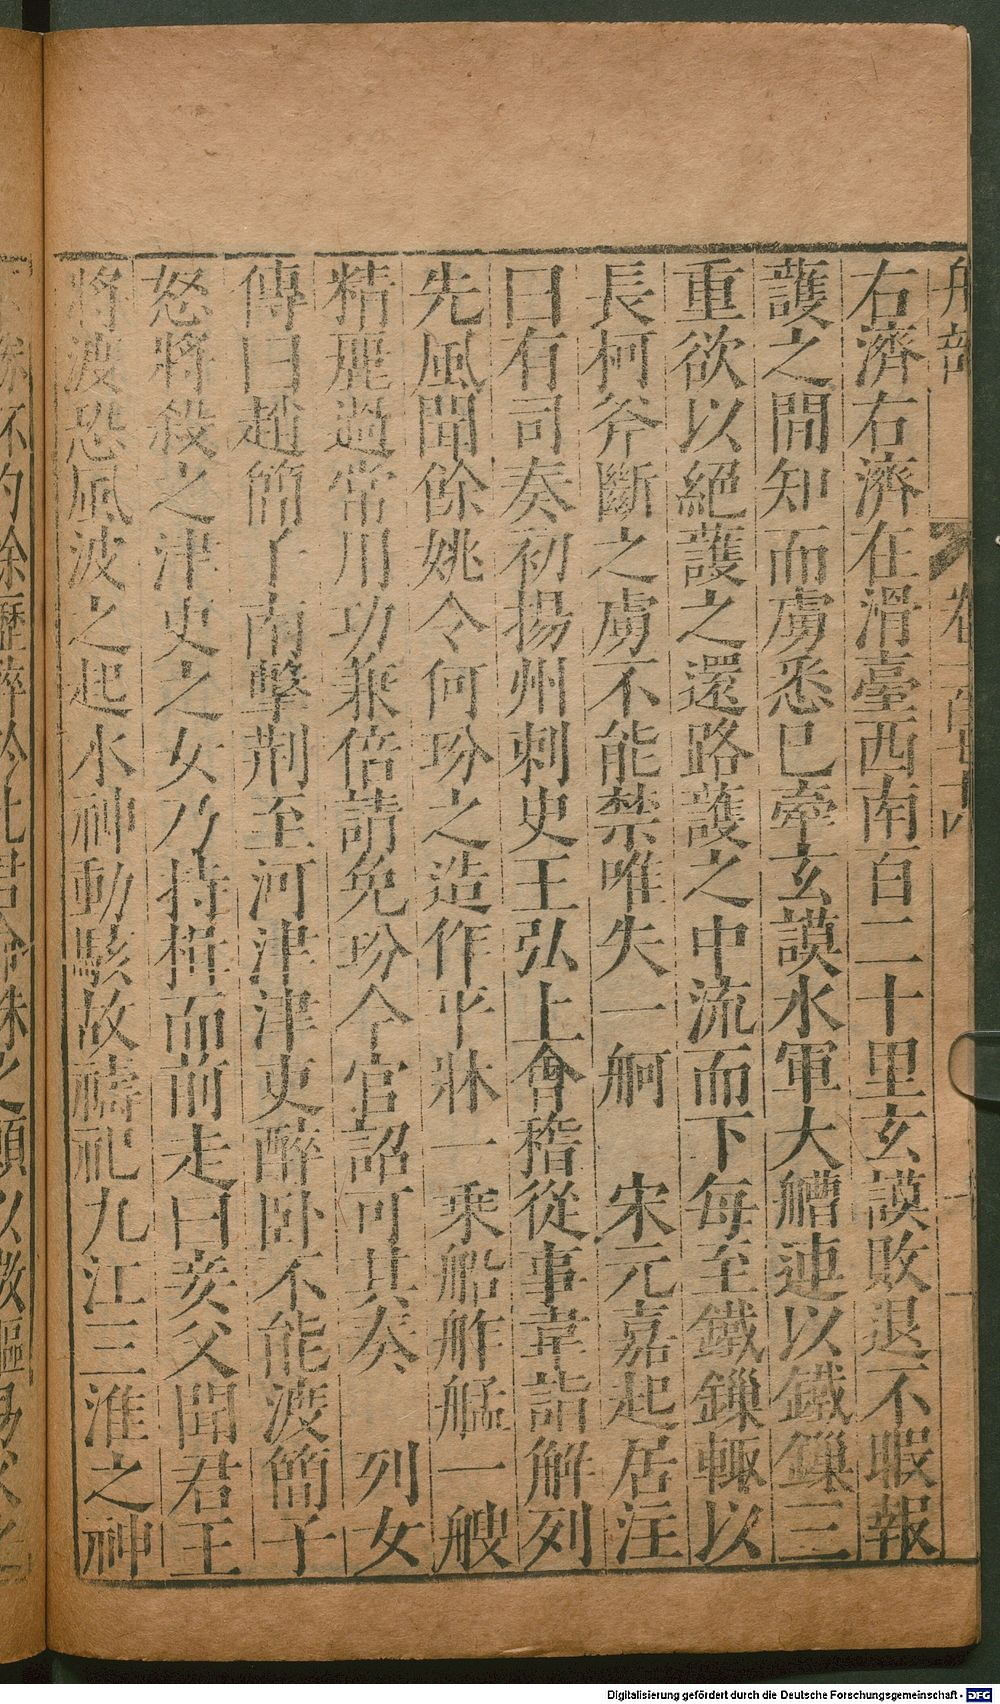 舟部
右濟右濟在滑臺西南百二十里玄謨敗退不暇報
護之間知而虜悉已牽玄謨水軍大艚連以鐵鏁三
重欲以絕護之還路護之中流而下每至鐵鏁輒以
長柯斧斷之虜不能禁唯失一舸 宋元嘉起居注
曰有司奏初揚州刺史王弘上會稽從事韋詣解列
先風聞餘姚令何玢之造作平牀一乘船舴艋一艘
精麗過常用功兼倍請免玢今官詔可其奏 列女
傳曰趙簡子南擊荆至河津津吏醉卧不能渡簡子
怒將殺之津吏之女乃持楫而前走曰妾父聞君王
將渡恐風波之起水神動駭故禱祀九江三淮之神
Digitalisierung gefördert durch die Deutsche Forschungsgemeinschaft - DFG